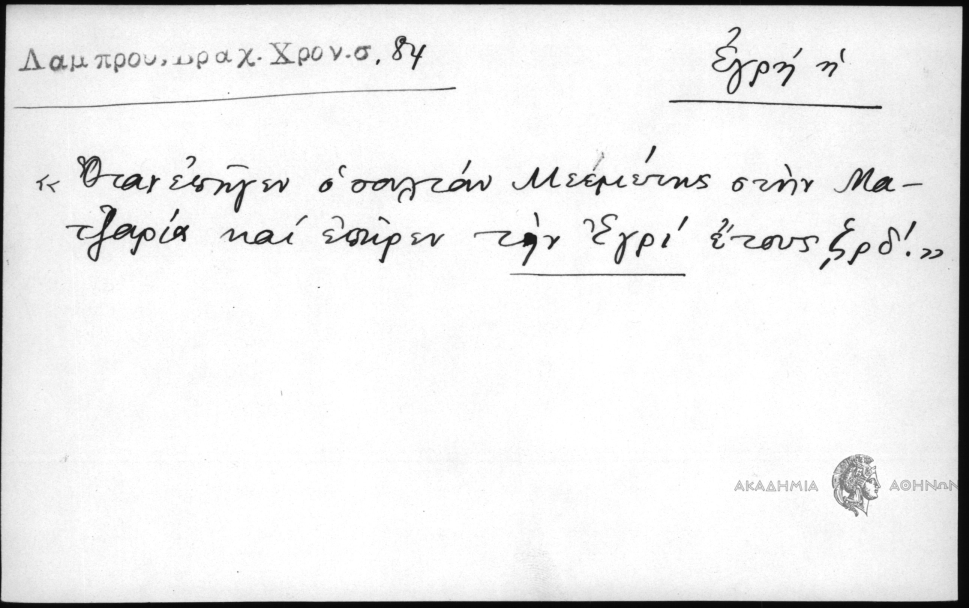 Λαμπρου, Βραχ. Χρον. σ. 84
Ἐγρή ἡ
« Ὅταν ἐπῆγεν ὁ σουλτάν Μεεμέτης στὴν Μα-
τζαρία καί ἐπῆρεν τὴν Ἐγρί ἔτους ζρδ΄. »
ΑΚΑΔΗΜΙΑ ΑΘΗΝΩΝ